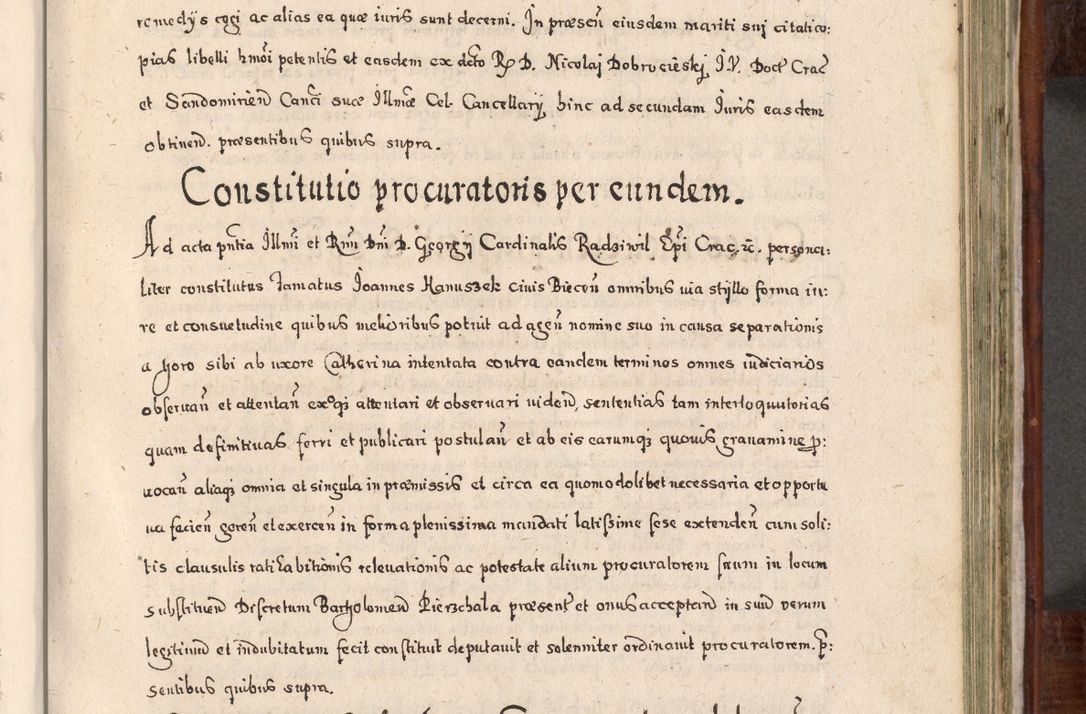 remedijs cogi ac alias ea quæ iuris sunt decerni. In præsen̄ eiusdem mariti suj citatico:
pias libelli hmōi petentis et easdem ex dcto R. D. Nicolaj Dobrocieskj I.V. Doct. Crac̄
et Sendomirien̄ Canci suæ Illmæ Cel. Cancellarij hinc ad secundam Iuris easdem
obtinen̄. præsentibus quibus supra.
Constitutio procuratoris per eundem.
Ad acta pn̄tia Illmi et Rmi Dni D. Georgij Cardinalis Radziwil Ep̄i Crac. etc. persona:
liter constitutus famatus Joannes Hanuszek ciuis Biecen̄ omnibus uia stijlo forma iu:
re et consuetudine quibus melioribus potuit ad agen̄ nomine suo in causa separationis
a thoro sibi ab uxore Catherina intentata contra eandem terminos omnes iudiciarios
obseruan̄ et attentan̄ attentari et obseruari uiden̄, sententias tam interloquutorias
quam definitiuas ferri et publicari postulan̄ et ab eis earumq; quouis grauamine p:
uocan̄ aliaq; omnia et singula in præmissis et circa ea quomodolibet necessaria et opportu
na facien̄ geren̄ et exercen̄ in forma plenissima mandati latissime sese extenden̄ cum soli:
tis clausulis ratihabitionis releuationis ac potestate alium procuratorem suum in locum
substituen̄ Discretum Bartholomeū Pierzchala præsent. et onus acceptan̄ in suū uerum
legitimū et indubitatum fecit constituit deputauit et solenniter ordinauit procuratorem. p̄:
sentibus quibus supra.